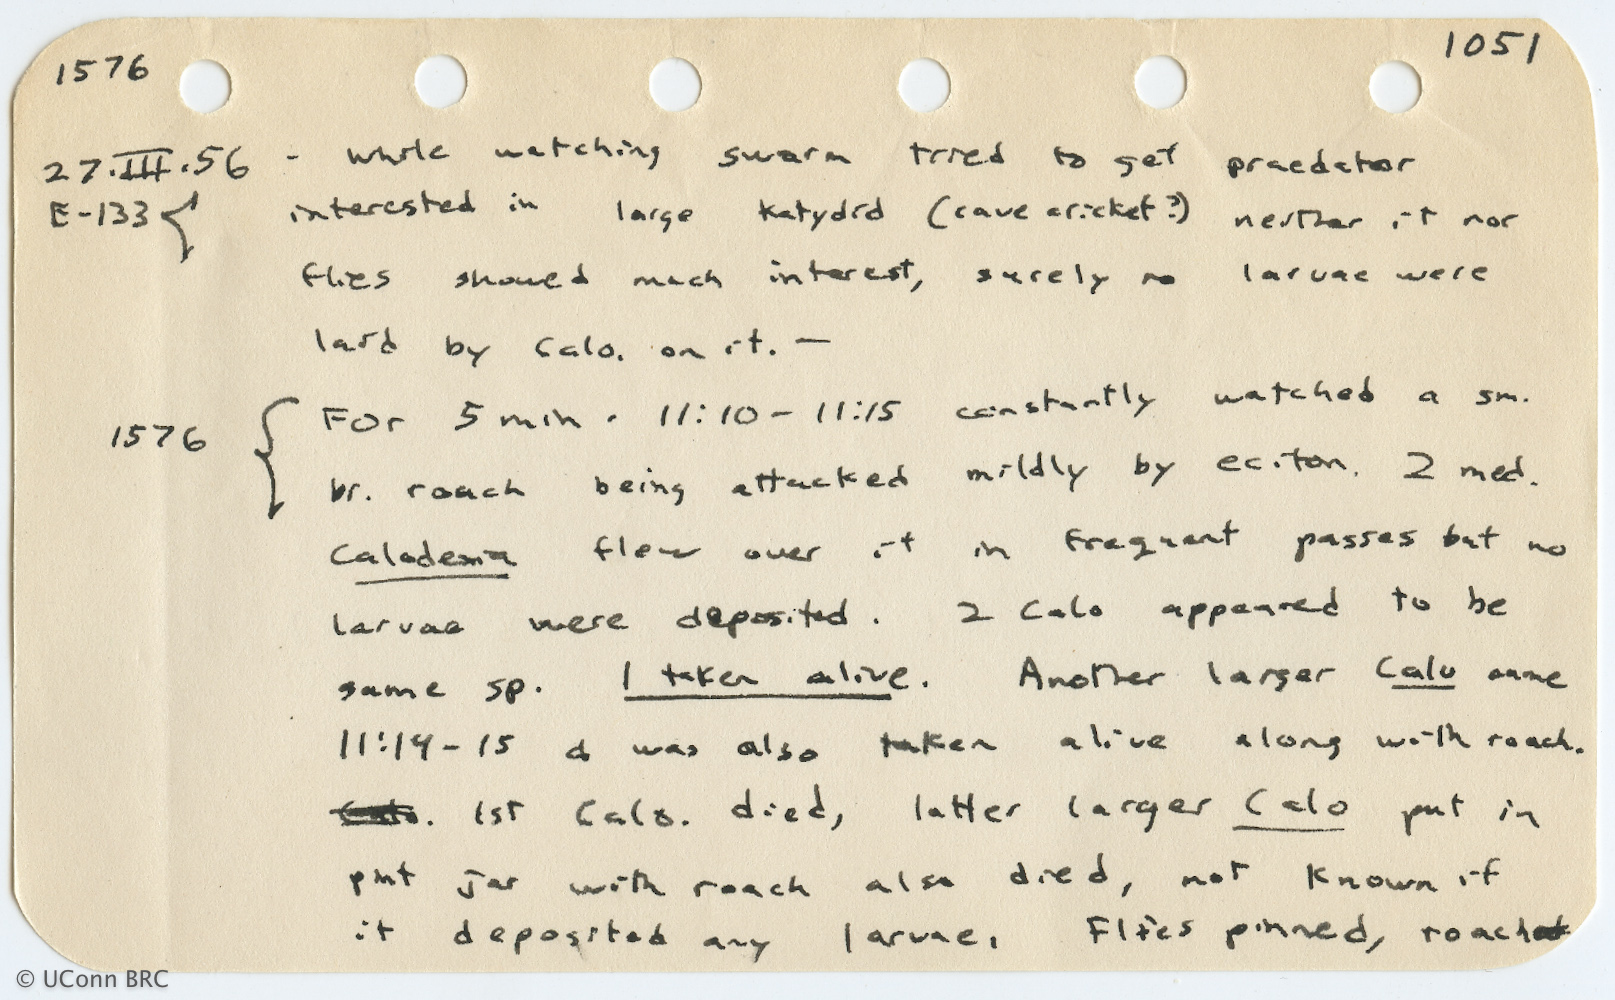 1576 1051
27.III.56 - while watching swarm tried to get praedator
E-133 { interested in large katydid (cave cricket?) neither it nor
flies showed much interest, surely no larvae were
laid by Calo. on it. —
For 5 min. 11:10 - 11:15 constantly watched a sm.
1576 { br. roach being attacked mildly by eciton. 2 med.
Calodexia flew over it in frequent passes but no
larvae were deposited. 2 Calo appeared to be
same sp. 1 taken alive. Another larger Calo came
11:14-15 & was also taken alive along with roach.
Calo. 1st Calo. died, latter larger Calo put in
pint jar with roach also died, not known if
it deposited any larvae. Flies pinned, roach
© UConn BRC